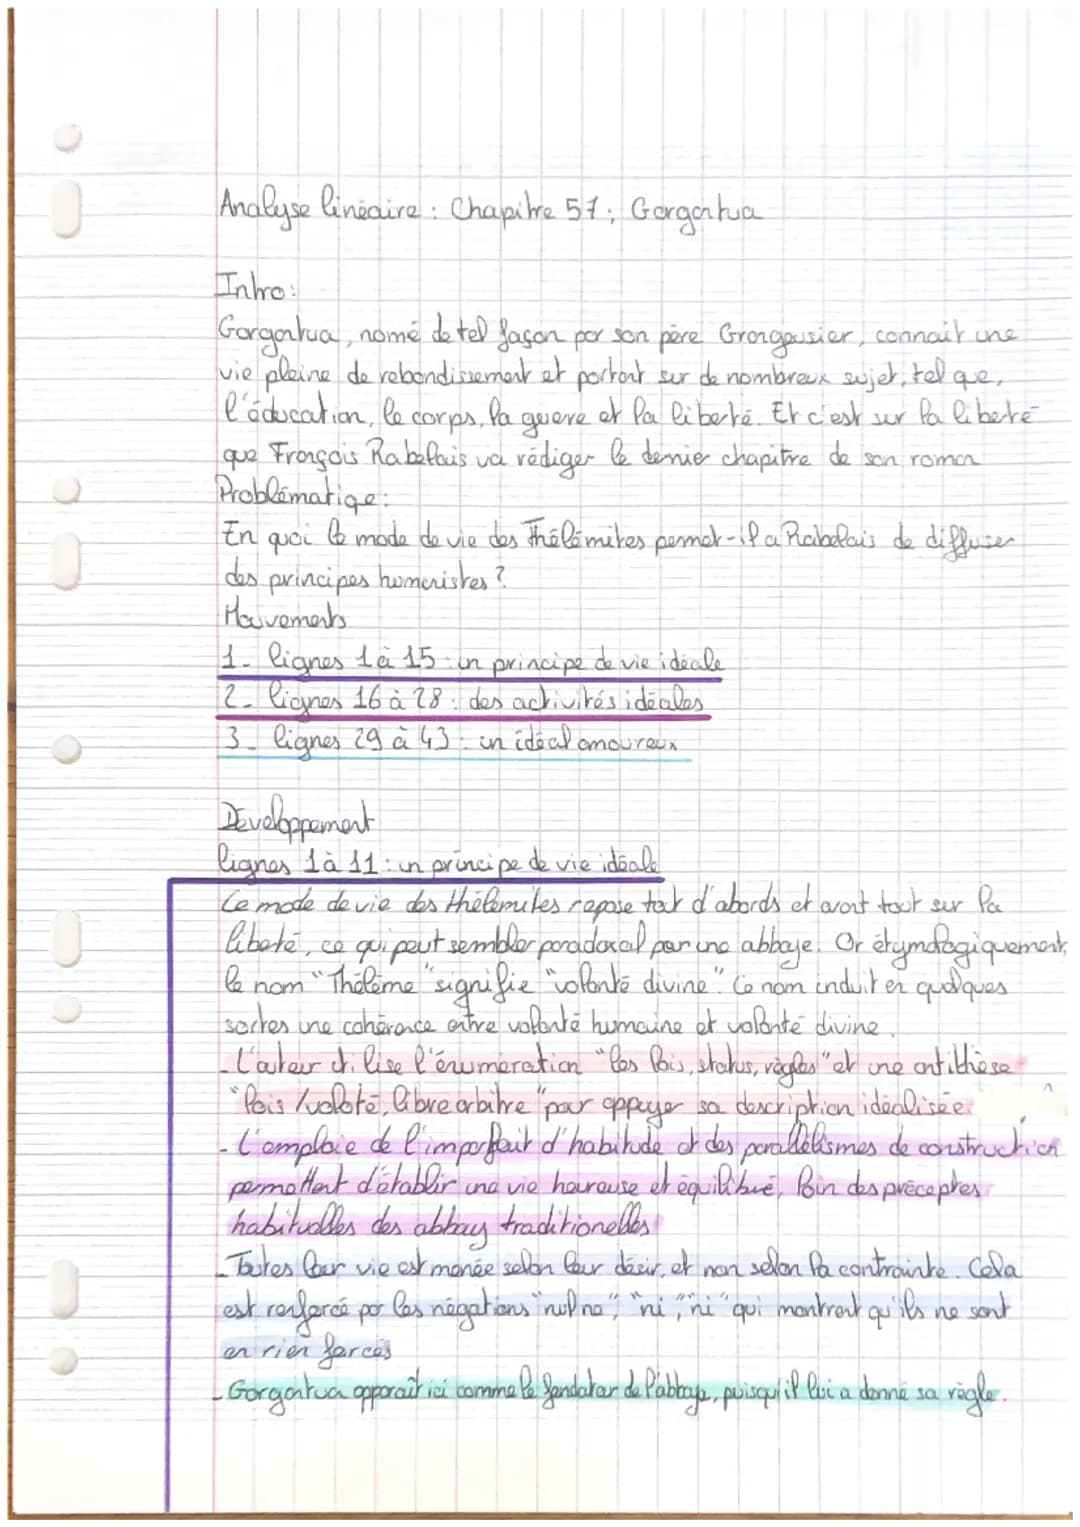 Analyse linéaire : Chapitre 57 ; Gargantua
Intro :
Gargantua, nomé de tel façon par son père Grangousier, connait une
vie pleine de rebondissement et portant sur de nombreux sujet, tel que,
l'éducation, le corps, la guere et la liberté. Et c'est sur la liberté
que François Rabelais va rédiger le dernier chapitre de son roman
Problématique :
En quoi le mode de vie des Thélémites permet-il a Rabelais de diffuser
des principes humanistes ?
Mouvements
1_ lignes 1 à 15 : un principe de vie idéale
2_ lignes 16 à 28 : des activités idéales
3_ lignes 29 à 43 : un idéal amoureux
Développement
lignes 1 à 11 : un principe de vie idéale
Ce mode de vie des thélémites repose tout d'abords et avant tout sur la
liberté, ce qui peut sembler paradoxal par une abbaye. Or étymologiquement,
le nom "Thélème" signifie "volonté divine". Ce nom induit en quelques
sortes une cohérence entre volonté humaine et volonté divine.
- L'auteur utilise l'énumération "les lois, status, règles" et une antithèse
"lois / volonté, libre arbitre" pour appuyer sa description idéalisée.
- L'emploie de l'imparfait d'habitude et des parallélismes de construction
permettent d'établir une vie heureuse et équilibré, loin des préceptes
habituelles des abbay traditionelles
- Toutes leur vie est menée selon leur désir, et non selon la contrainte. Cela
est renforcé par les négations "nul ne", "ni", "ni" qui montrent qu'ils ne sont
en rien forcés
- Gargantua apparaît ici comme le fondateur de l'abbaye, puisqu'il lui a donné sa règle.